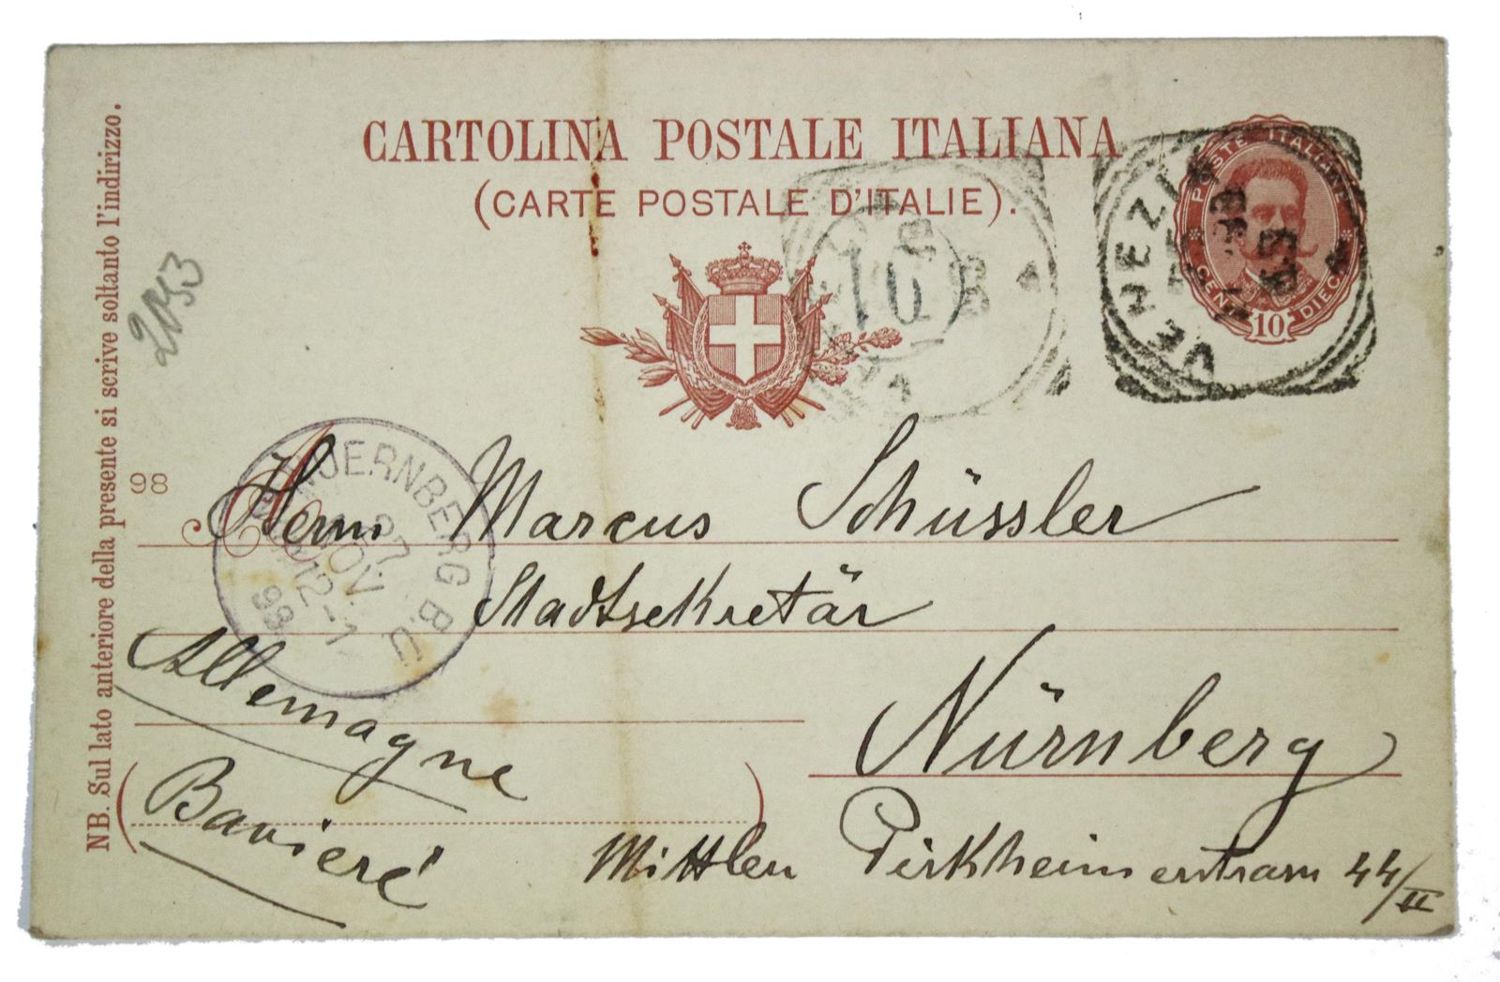 CARTOLINA POSTALE ITALIANA
(CARTE POSTALE D'ITALIE).
POSTE ITALIANE
CENT. 10 DIECI
VENEZIA
NB. Sul lato anteriore della presente si scrive soltanto l'indirizzo.
2053
98
A
NUERNBERG B.U
27
NOV
12-1
98
Herrn Marcus Schüssler
Stadtsekretär
Allemagne
Nürnberg
(Bavieré)
Mittlere Pirkheimerstrasse 44/II